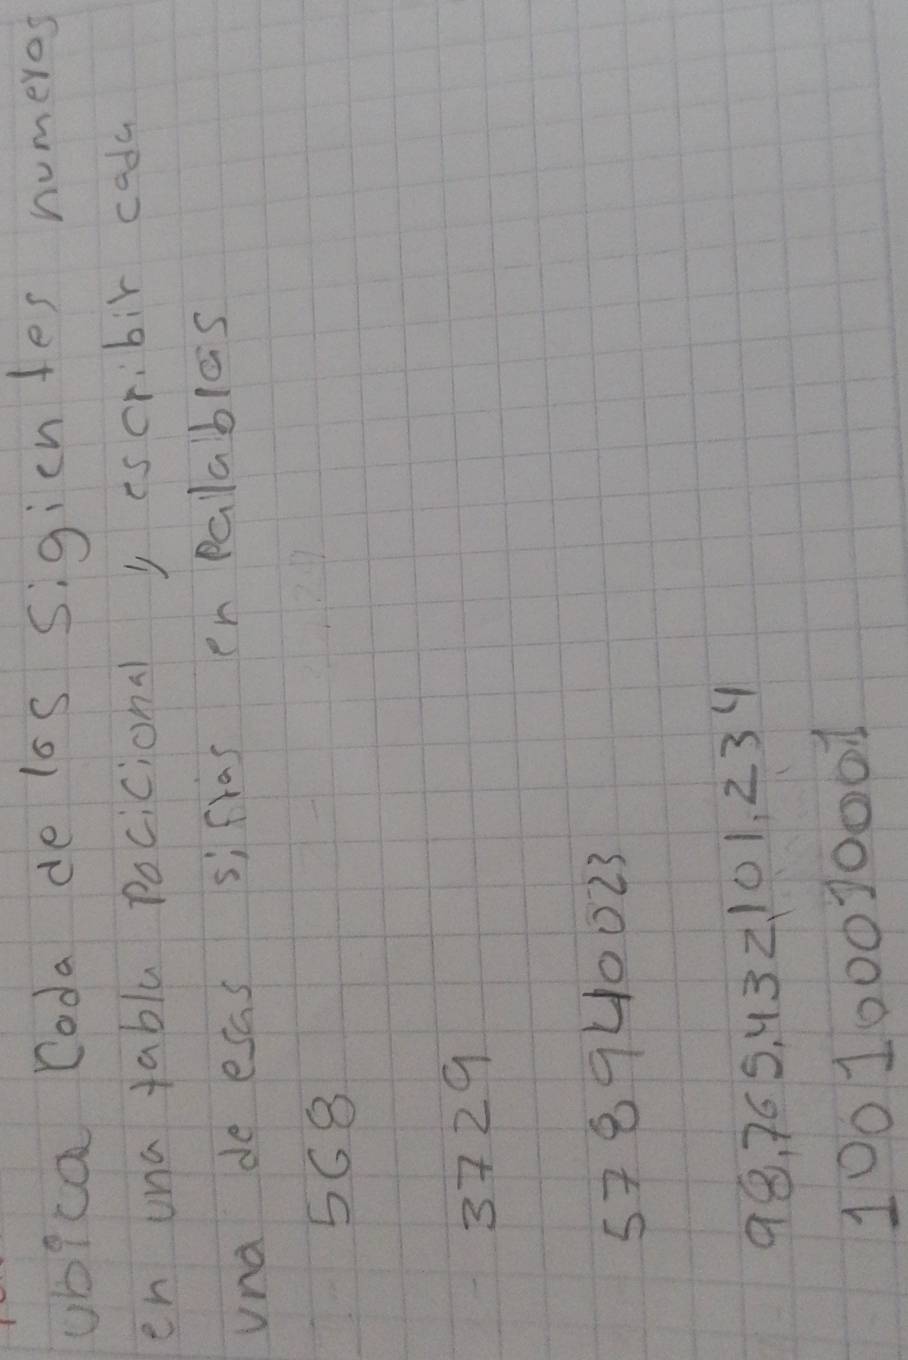 ubica Coda de los Sigientes numeros
en una tabla Pocicional y escribir cada
una de esas sifras en Palablas
568
3729
57894023
98,765,432,101,234
1001000100001